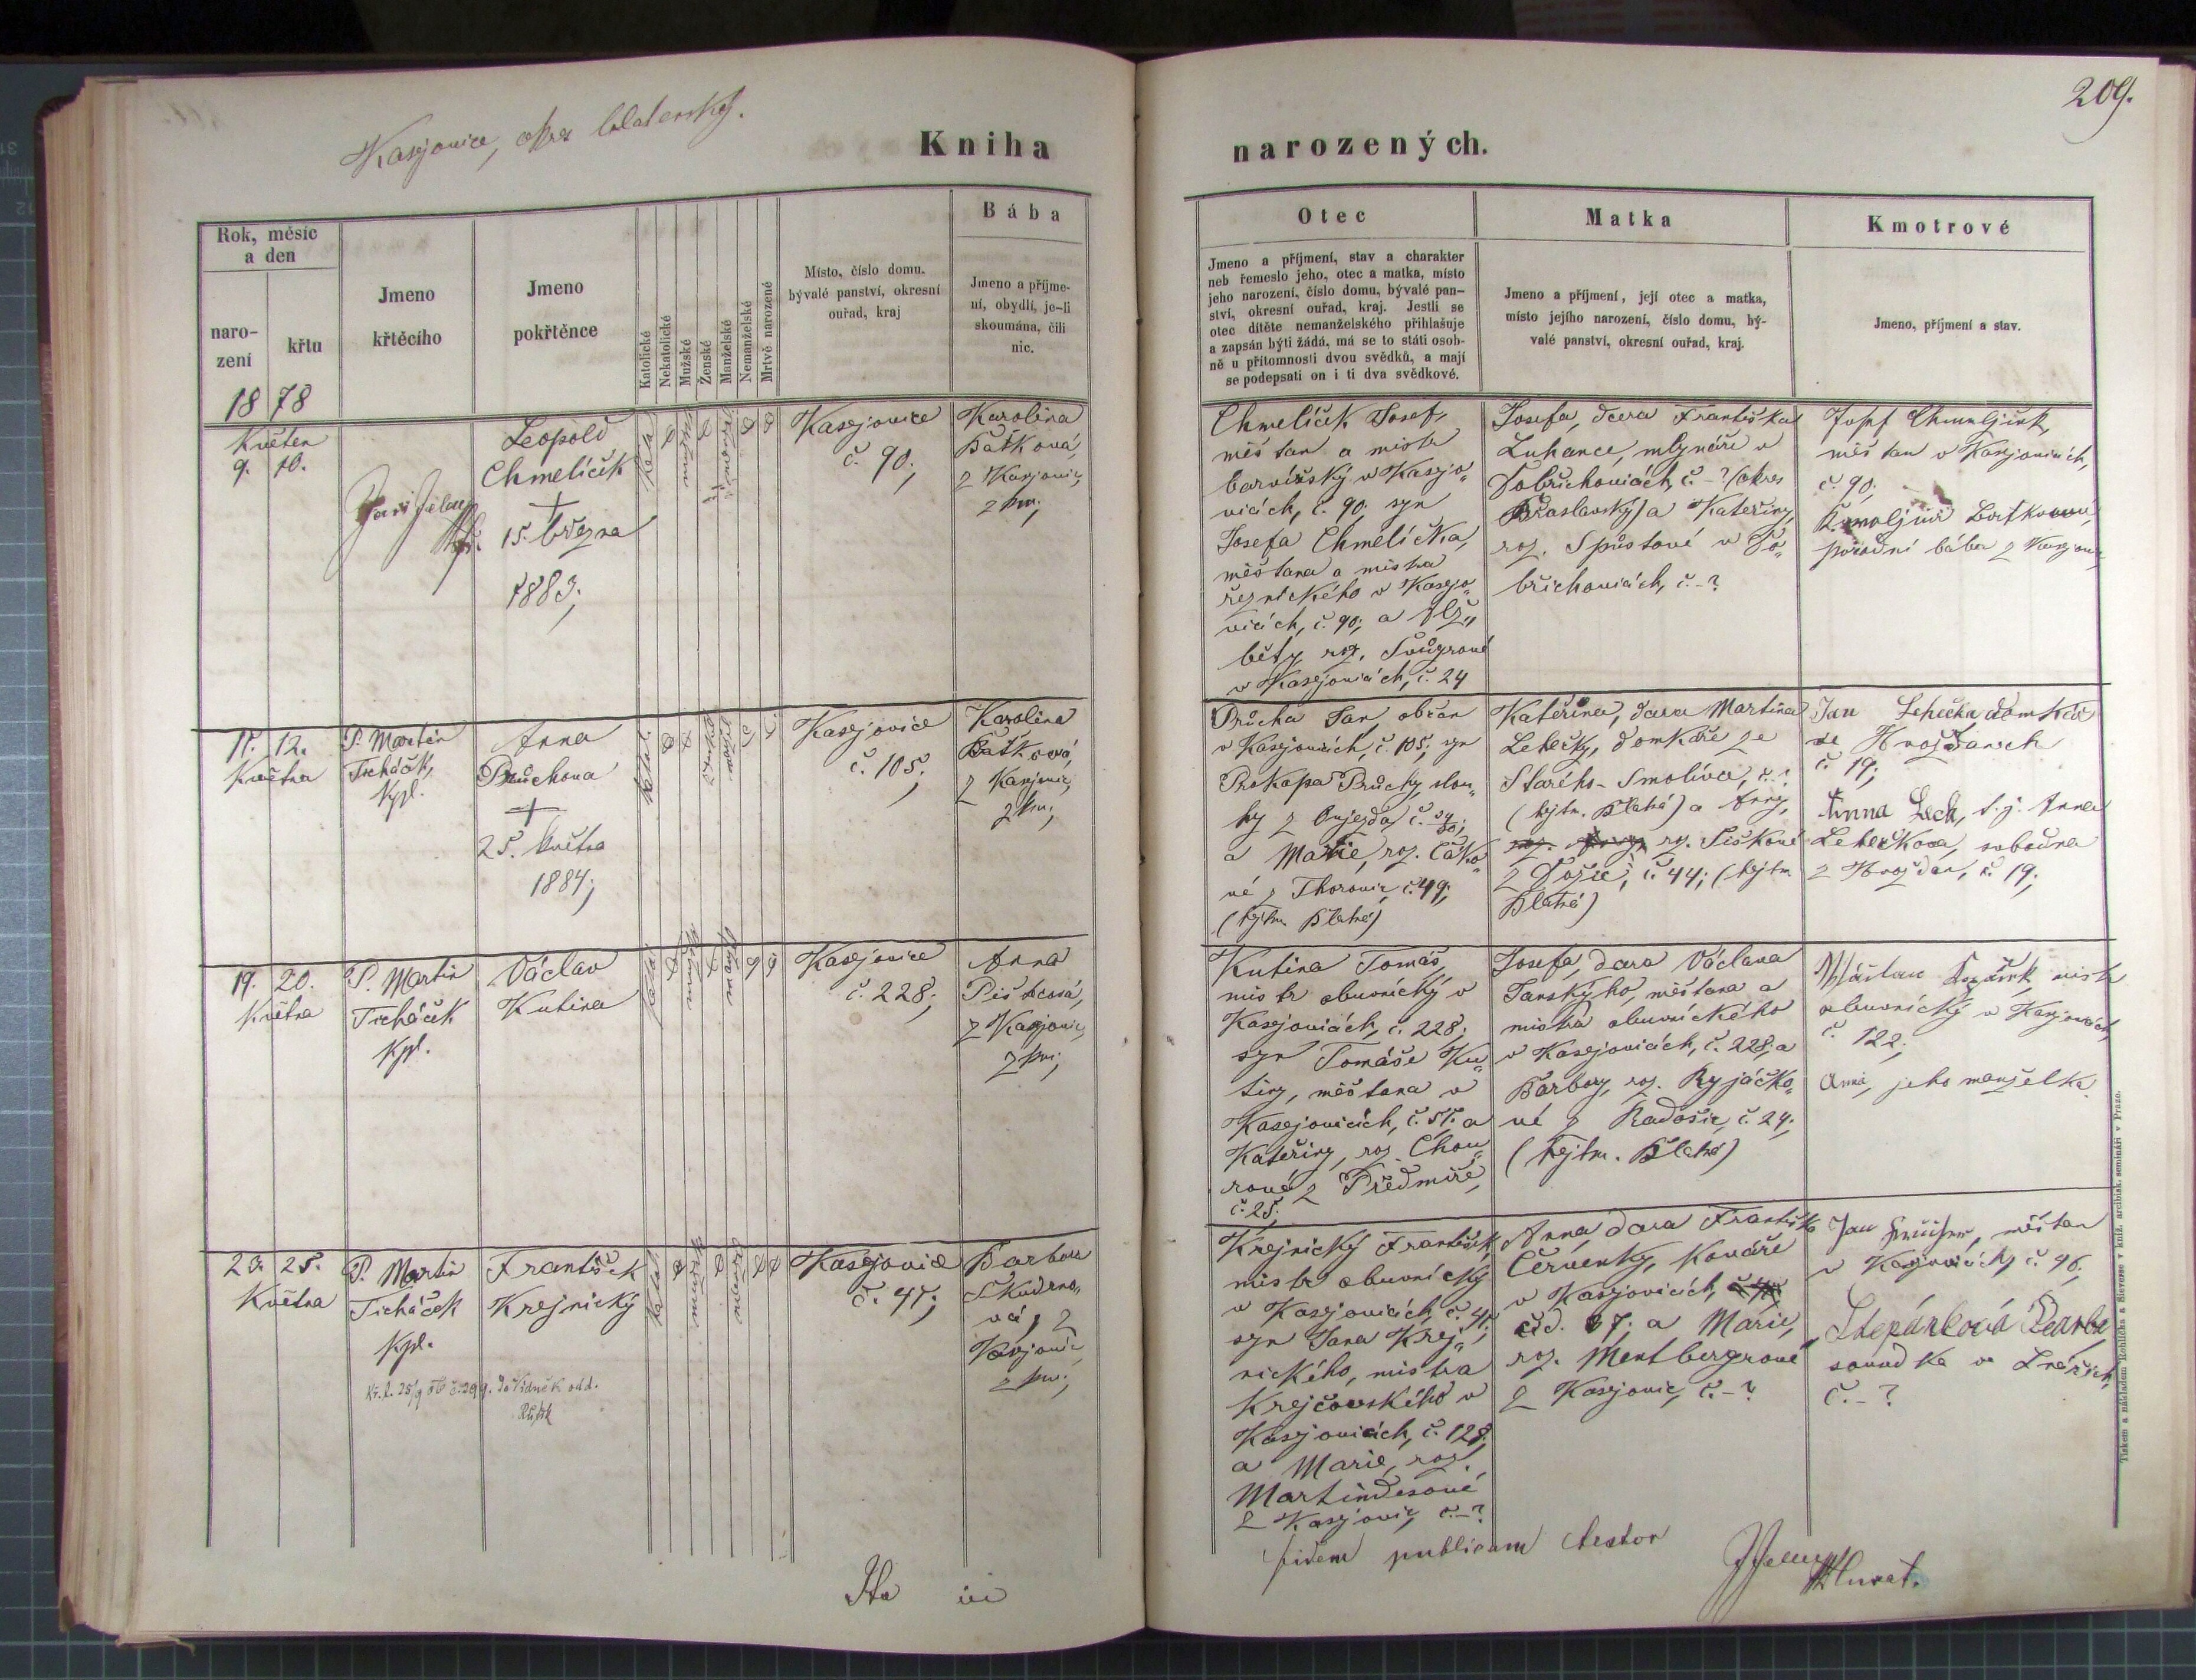 209.
Kasejovice, okres blatenský.
Kniha narozených.
Rok, měsíc
a den
naro-
zení
křtu
Jmeno
křtěcího
Jmeno
pokřtěnce
Katolické
Nekatolické
Mužské
Ženské
Manželské
Nemanželské
Mrtvě narozené
Místo, číslo domu,
bývalé panství, okresní
ouřad, kraj
Bába
Jmeno a příjme-
ní, obydlí, je-li
skoumána, čili
nic.
Otec
Jmeno a příjmení, stav a charakter
neb řemeslo jeho, otec a matka, místo
jeho narození, číslo domu, bývalé pan-
ství, okresní ouřad, kraj. Jestli se
otec dítěte nemanželského přihlašuje
a zapsán býti žádá, má se to státi osob-
ně u přítomnosti dvou svědků, a mají
se podepsati on i ti dva svědkové.
Matka
Jmeno a příjmení, její otec a matka,
místo jejího narození, číslo domu, bý-
valé panství, okresní ouřad, kraj.
Kmotrové
Jmeno, příjmení a stav.
1878
Květen
9. 10.
Leopold
Chmelíček
+
15. března
1883;
Kasejovice
č. 90;
Karolina
Baťková,
z Kasejovic,
zkou;
Chmelíček Josef,
měšťan a mistr
barvířský v Kasejo„
vicích, č. 90; syn
Josefa Chmelíčka,
měšťana a mistra
řeznického v Kasejo„
vicích, č. 90; a Alž„
běty roz.
v Kasejovicích, č. 24
Josefa, dcera Františka
Luhance, mlynáře v
Dobřichovicích, č. - ? (okres
a Kateřiny,
roz. v Do„
břichovicích, č. - ?
Josef
měšťan v Kasejovicích,
č. 90;
porodní bába z Kasejovic
11. 12.
Května
P. Martin
Ticháček,
kpl.
Anna
Průchova
+
25. května
1884;
Kasejovice
č. 105;
Karolina
Baťková,
z Kasejovic,
zkou;
Průcha Jan, občan
v Kasejovicích, č. 105; syn
Prokopa Průchy, slou„
hy z
a Marie, roz.
vé z Thorovic č. 49;
(hejtm. Blatná)
Kateřina, dcera Martina
Lehečky, domkáře ze
Starého-Smolivce, č. ?
(hejtm. Blatná) a Anny,
roz. Šiškové
z Dožic, č. 44; (hejtm.
Blatná)
Jan Lehečka domkář
ve Hvožďanech
č. 19;
Anna Lech, t. j. Anna
Lehečkova, svobodna
z Hvožďan, č. 19;
19. 20.
Května
P. Martin
Ticháček
kpl.
Václav
Kutina
Kasejovice
č. 228;
Anna
z Kasejovic,
zkou;
Kutina Tomáš,
mistr obuvnický v
Kasejovicích, č. 228;
syn Tomáše Ku„
tiny, měšťana v
Kasejovicích, č. 51; a
Kateřiny, roz. Chou„
rové z Předmíře,
č. 25.
Josefa, dcera Václava
Janského, měšťana a
mistra obuvnického
v Kasejovicích, č. 228, a
Barbory, roz. Ryjáčko„
vé z Radošic, č. 24;
(hejtm. Blatná)
mistr
obuvnický v Kasejovicích,
č. 122;
Anna, jeho manželka.
23. 25.
Května
P. Martin
Ticháček
kpl.
František
Krejnický
Kasejovice
č. 41;
Barbora
Škudrno„
vá, z
Kasejovic,
zkou;
Krejnický František,
mistr obuvnický
v Kasejovicích, č. 41;
syn Jana Krej„
nického, mistra
Krejčovského v
Kasejovicích, č. 128;
a Marie, roz.
Martindesové
z Kasejovic, č. - ?
Anna, dcera Františka
Červenky, kováře
v Kasejovicích,
čd. 67; a Marie,
roz. Mentbergrové
z Kasejovic, č. - ?
Jan měšťan
v Kasejovicích, č. 96;
Štěpánková
sousedka ve Lnářích,
č. - ?
fidem publicam testor
Tiskem a nákladem Rohlíčka a Sieverse v kníž. arcibisk. semináři v Praze.